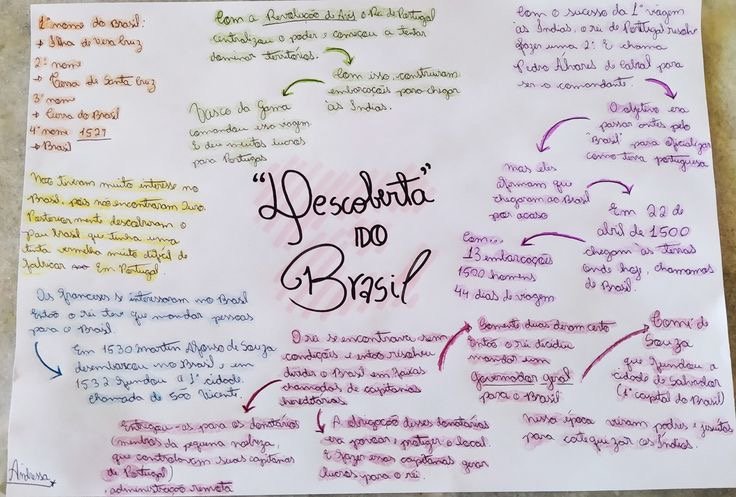 1º nome do Brasil:
→ Ilha de Vera Cruz
2º nome
→ Terra de Santa Cruz
3º nome
→ Terra do Brasil
4º nome 1527
→ Brasil
Com a Revolução de Avis o Rei de Portugal
centralizou o poder e começou a tentar
dominar territórios.
Com isso, construíram
embarcações para chegar
às Índias.
Vasco da Gama
comandou essa viagem
E deu muitos lucros
para Portugal
Com o sucesso da 1ª viagem
às Índias, o rei de Portugal resolve
fazer uma 2ª. E chama
Pedro Álvares de Cabral para
ser o comandante.
O objetivo era
passar antes pelo
"Brasil" para oficializar
como terra portuguesa
mas eles
afirmam que
chegaram ao Brasil
por acaso
Em 22 de
abril de 1500
chegam às terras
onde hoje, chamamos
de Brasil.
Com...
13 embarcações
1500 homens
44 dias de viagem
"Descoberta"
DO
Brasil
Não tiveram muito interesse no
Brasil, pois não encontraram ouro.
Posteriormente descobriram o
pau brasil que tinha uma
tinta vermelha muito difícil de
fabricar em Portugal
Os franceses se interessaram no Brasil
Então o rei teve que mandar pessoas
para o Brasil.
Em 1530 Martin Afonso de Souza
desembarcou no Brasil e em
1532 fundou a 1ª cidade
chamada de São Vicente.
O rei se encontrava sem
condições e então resolveu
dividir o Brasil em faixas
chamadas de capitanias
hereditárias
Entregou-as para os donatários
(membros da pequena nobreza,
que controlavam suas capitanias
de Portugal)
administração remota
A obrigação desses donatários
era povoar e proteger o local.
E fazer essas capitanias gerar
lucros para o rei.
Somente duas deram certo
Então o rei decidiu
mandar um
governador geral
para o Brasil
Tomé de
Souza
que fundou a
cidade de Salvador
(1ª capital do Brasil)
Nessa época vieram padres e jesuítas
para catequizar os Índios.
Andressa